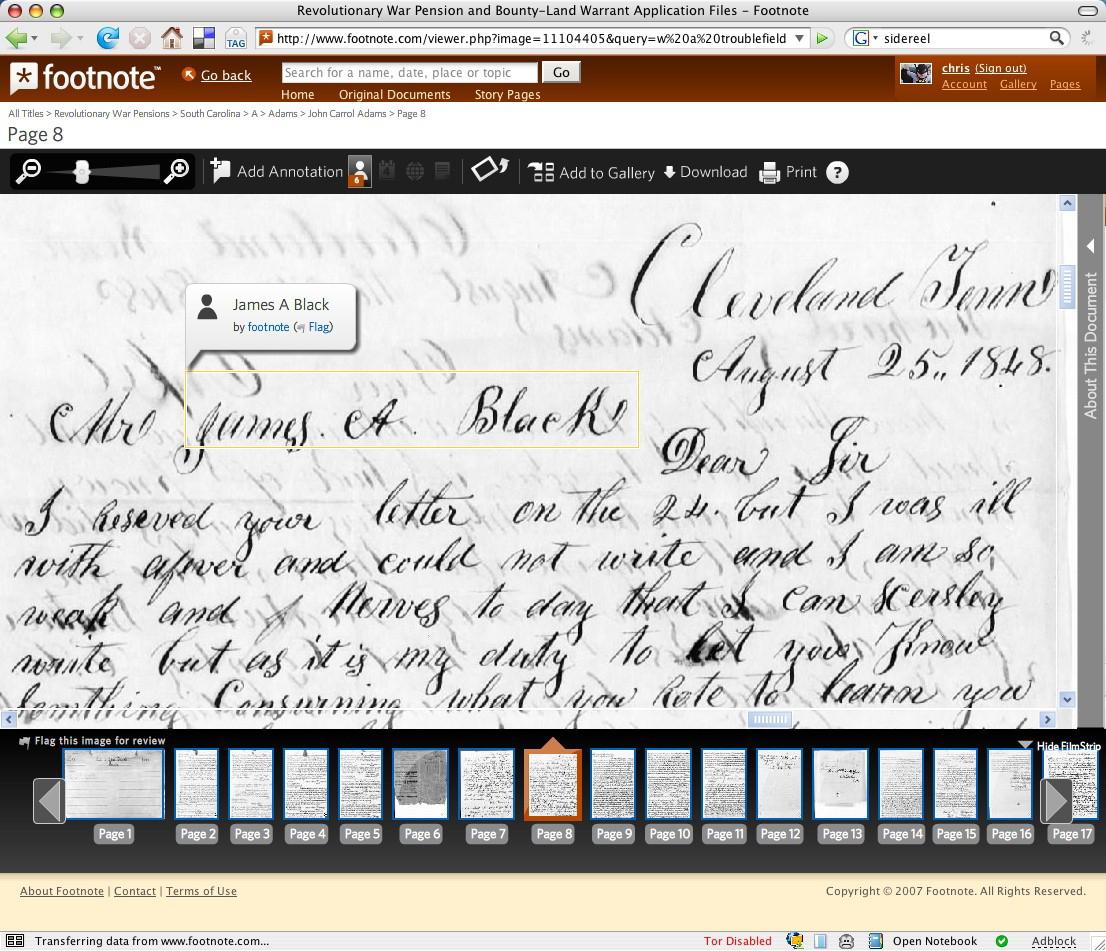 Revolutionary War Pension and Bounty-Land Warrant Application Files – Footnote
TAG
http://www.footnote.com/viewer.php?image=11104405&query=w%20a%20troublefield
sidereel
footnote™
Go back
Search for a name, date, place or topic
Go
Home Original Documents Story Pages
chris (Sign out)
Account Gallery Pages
All Titles > Revolutionary War Pensions > South Carolina > A > Adams > John Carrol Adams > Page 8
Page 8
Add Annotation
6
Add to Gallery
Download
Print
?
About This Document
Cleveland Tenn
August 25,, 1848.
James A Black
by footnote ( Flag)
Mr James. A. Black
Dear Sir
I reseved your letter on the 24. but I was ill
with afever and could not write and I am so
weak and Nerves to day that I can scersley
write but as it is my duty to let you Know
somthing Consurning what you Rote to learn you
Flag this image for review
Hide FilmStrip
Page 1 Page 2 Page 3 Page 4 Page 5 Page 6 Page 7 Page 8 Page 9 Page 10 Page 11 Page 12 Page 13 Page 14 Page 15 Page 16 Page 17
About Footnote | Contact | Terms of Use
Copyright © 2007 Footnote. All Rights Reserved.
Transferring data from www.footnote.com...
Tor Disabled
Open Notebook
Adblock